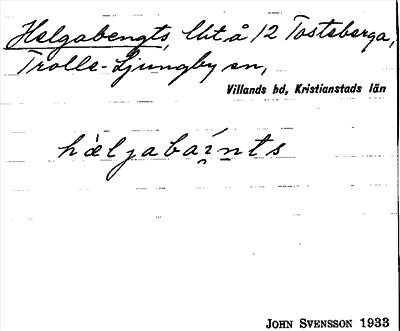 Helgabengts, lht å 12 Tosteberga,
Trolle-Ljungby sn,
Villands hd, Kristianstads län
hæ̀ljabaí̯n̯ts
JOHN SVENSSON 1933